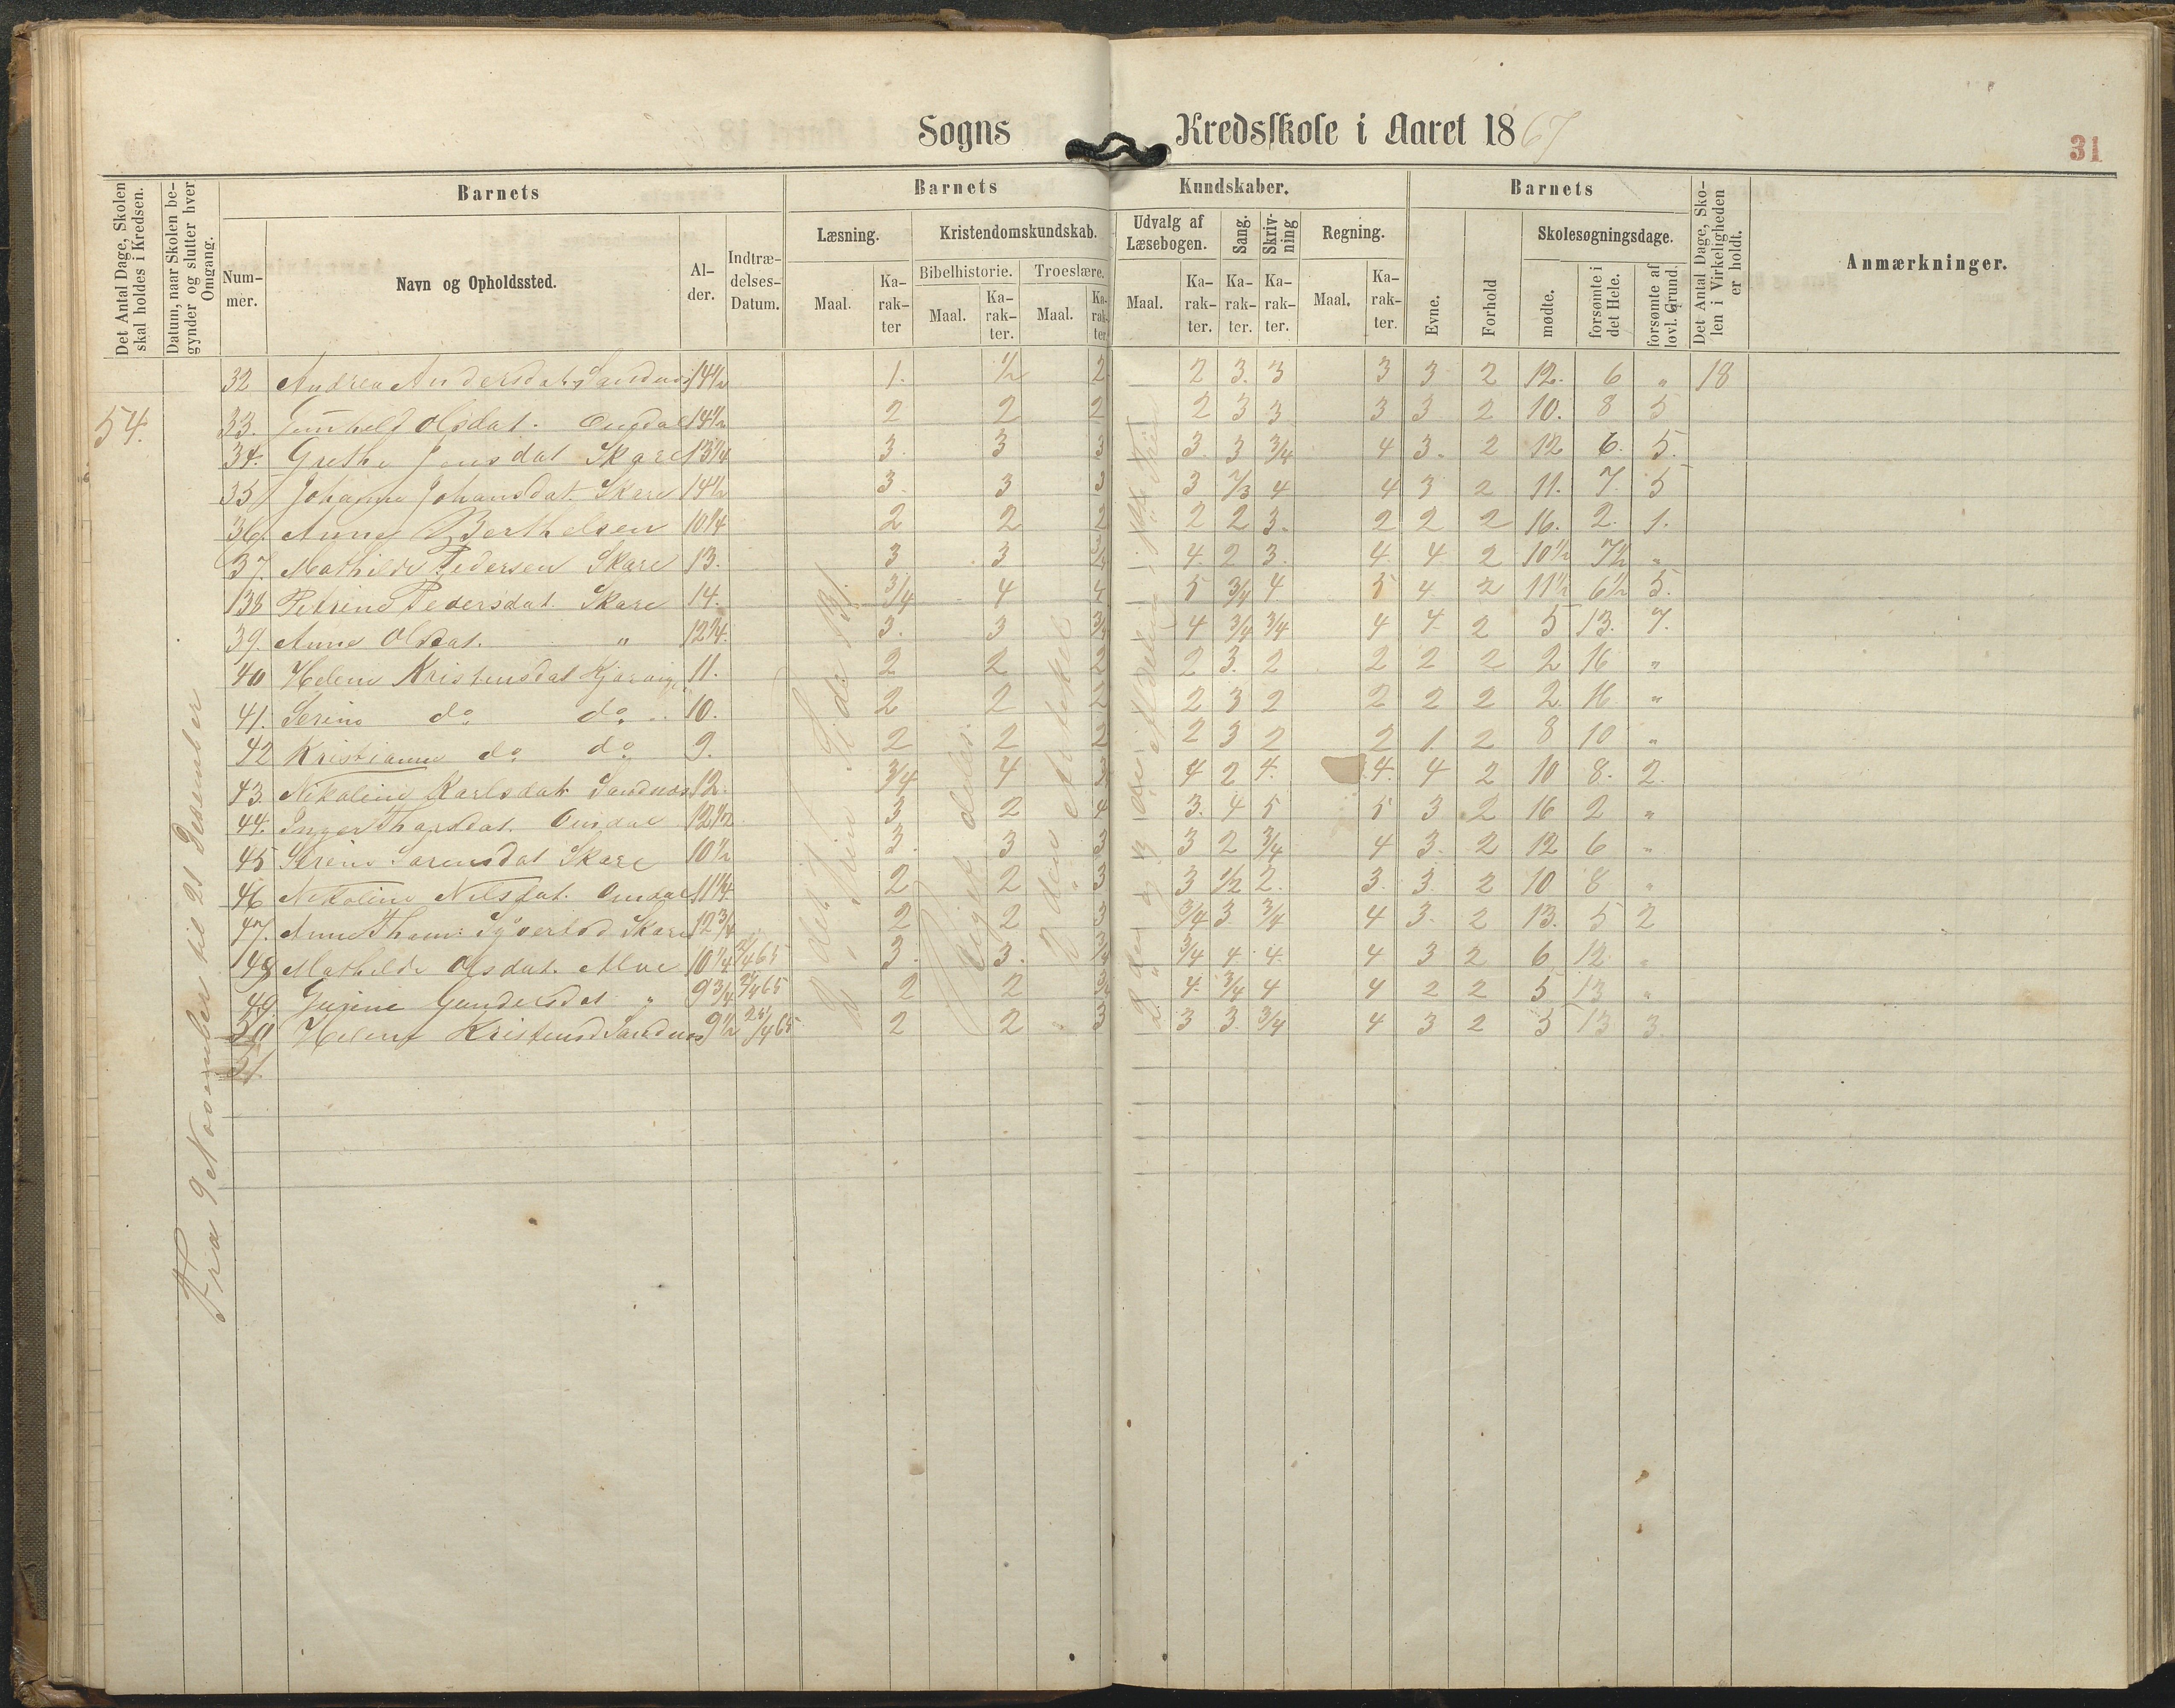 Sogns Kredsskole i Aaret 1867
31
Det Antal Dage, Skolen skal holdes i Kredsen.
Datum, naar Skolen begynder og slutter hver Omgang.
Barnets
Nummer.
Navn og Opholdssted.
Alder.
Indtrædelses-Datum.
Barnets Kundskaber.
Læsning.
Maal.
Karakter
Kristendomskundskab.
Bibelhistorie.
Maal.
Karakter.
Troeslære.
Maal.
Karakter
Udvalg af Læsebogen.
Maal.
Karakter.
Sang.
Karakter.
Skrivning
Karakter.
Regning.
Maal.
Karakter.
Barnets
Evne.
Forhold
Skolesøgningsdage.
mødte.
forsømte i det Hele.
forsømte af lovl. Grund.
Det Antal Dage, Skolen i Virkeligheden er holdt.
Anmærkninger.
54.
Fra 9 November til 21 Desember
32 Andrea Andersdat. Sandnes 14½ 1. ½ 2 2 3. 3 3 3 2 12. 6 „ 18
33. Gunhild Olsdat. Omdal 14½ 2 2 2 2 3 3 3 3 2 10. 8 5
34. Grethe Jensdat Skare 13¼ 3. 3 3 3. 3 3/4 4 3. 2 12 6. 5.
35 Johanne Johansdat Skare 14½ 3. 3 3 3 2/3 4 4 3 2 11. 7. 5
36. Anne Berthelsen 10¼ 2 2 2 2 2 3. 2 2 2 16. 2. 1.
37. Mathilde Pedersen Skare 13. 3 3 3/4 4. 2 3. 4. 4 2 10½ 7½ „
38 Petrine Pedersdat. Skare 14. 3/4 4 4 5 3/4 4. 5 4 2 11½ 6½ 5.
39. Anne Olsdat. „ 12¼. 3. 3 3/4 4 3/4 3/4 4 4 2 5 13. 7.
40 Helene Kristensdat Kjørvig 11. 2 2 2 2 3. 2 2 2 2 2 16 „
41. Serine do do 10. 2 2 2 2 3 2 2 2 2 2 16 „
42 Kristianne do do 9. 2 2 2 2 3 2 2 1. 2 8 10 „
43. Nikoline Karlsdat Sandnes 12. 3/4 4 3 4 2 4. 4. 4 2 10 8. 2.
44. Inger Tharsdat. Omdal 12½ 3 2 4 3. 4 5 5 3 2 16 2 „
45 Serine Sørensdat Skare 10½ 3. 3 3 3 2 3/4 4 3. 2 12 6 „
46 Nikoline Nilsdat. Omdal 11¼ 2 2 3 3 ½ 2. 3. 3. 2 10 8 „
47. Anne Thom. Syvertsd Skare 12¾ 2 2 3 3/4 3 3/4 4 3. 2 13. 5 2
48 Mathilde Olsdat. Alve 10¼ 3. 3. 3/4 3/4 4. 4. 4 3 2 6 12 „
49. Gundersdat „ 9¾ 2 2 4. 3/4 4 4 2 2 5 13 „
50 Helene Kristensd Sandnes 9½ 2 2 3 3 3. 3/4 4 3 2 5 13 3.
51.